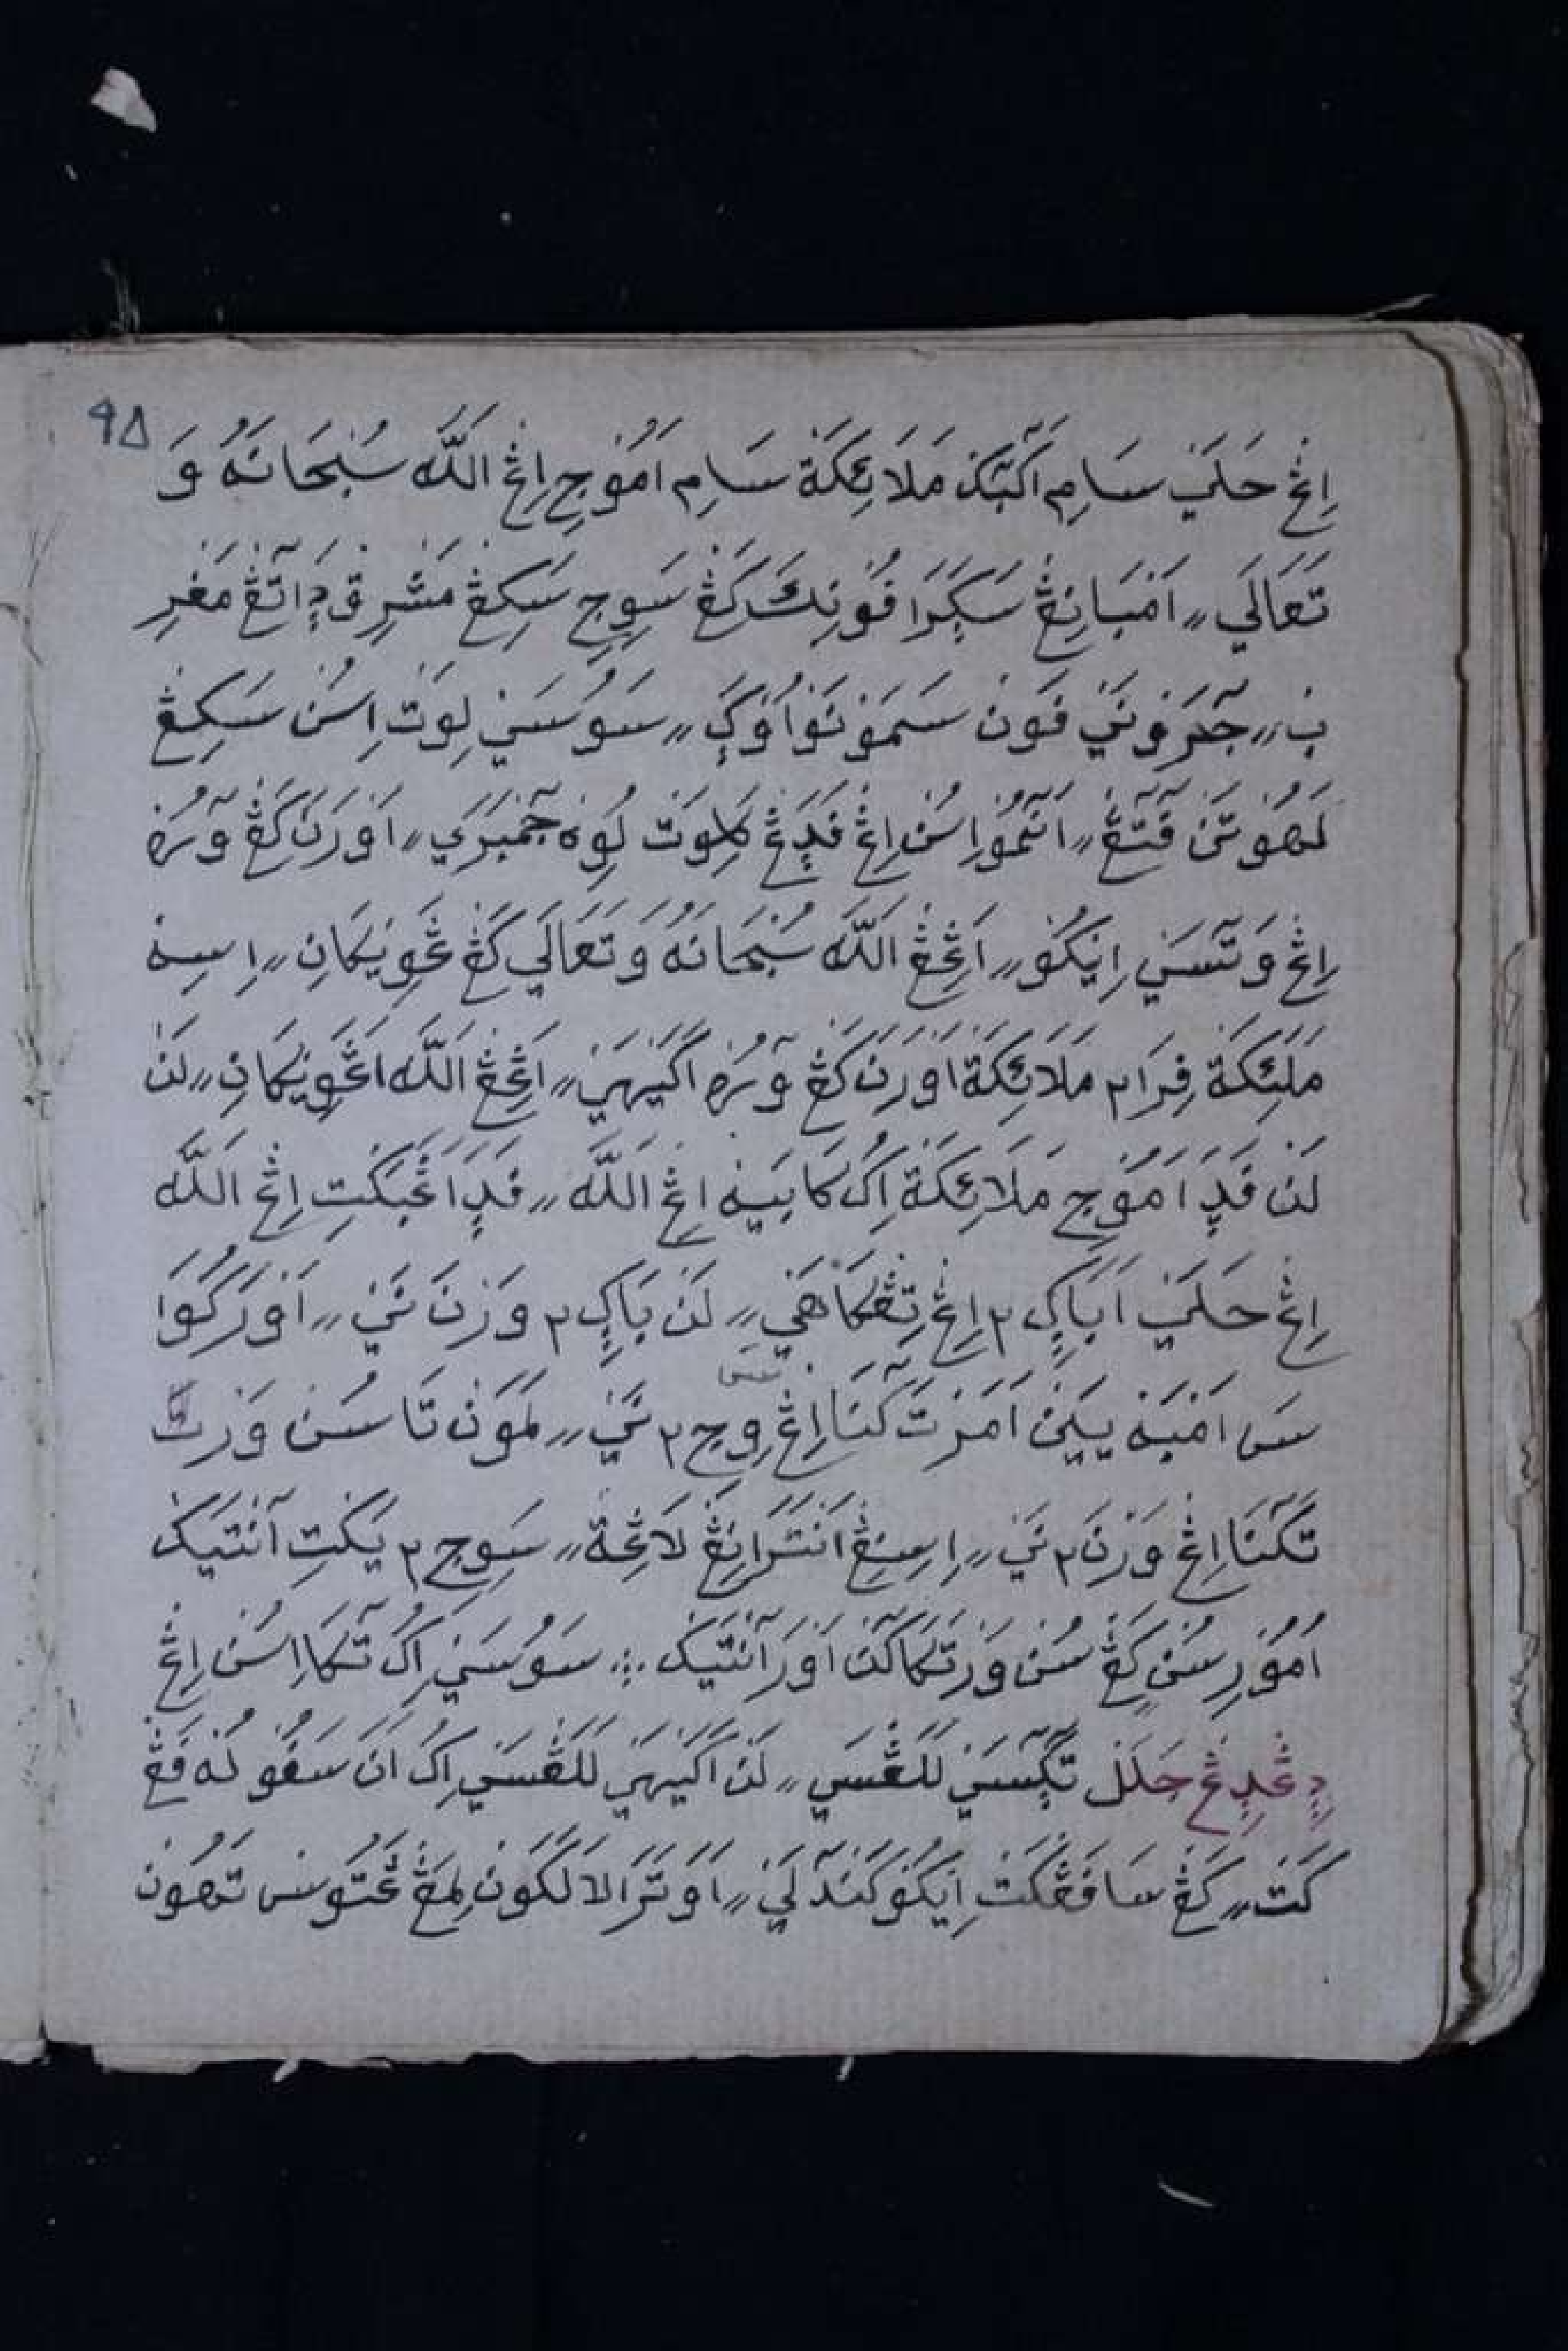 ٩٥
اِڠ حَلَنِ سَامِ اَكَبَّكَ مَلَائِكَةْ سَامِ اَمُوْجِ اِڠ اَللّٰه سُبْحَانَهُ وَ
تَعَالَى ،، اَمْبَانِڠْ سَكَرَا فُوْنِكَ كَڠْ سَوِجِ سَكِڠْ مَشْرِقْ دٍاتَڠْ مَغْرِ
بِ ،، جَرَوْنَيْ فَوَنْ سَمَوْنَوْ اُوْكَ ،، سَوُسَيْ لِوَتْ اِسُنْ سَكِڠْ
اِڠْ وَتَسَيْ اِيْكُوْ ،، اَڠِڠْ اَللّٰه سُبْحَانَهُ وَتَعَالَى كَڠْ ڠَوِيْكَانِ ،، اِسِهْ
مَلَئِكَةْ فِرَا٢ مَلَائِكَةْ اَوْرَنَ كَڠْ وَرُهْ اَكَيْهَيْ ،، اَڠِڠْ اَللّٰه اَڠَوِيْكَانِ ،، لَنْ
لَنْ فَدٍ اَمُوْجِ مَلَائِكَةْ اِكُ كَابَيْهْ اِڠْ اَللّٰه ،، فَدٍ اَڠَبَكْتِ اِڠْ اَللّٰه
اِڠْ حَلَنِ اَبَاكٍ٢ اِڠْ تِڠْكَاهَيْ ،، لَنْ بَاكٍ٢ وَرْنَ نَيْ ،، اَوْرَ كُوَا
سَ اَمْبَهْ يَيْنْ اَمَرْتَ كَنَا اِڠْ وِجِ٢ نَيْ ،، لَمَوْنْ تَا سُنْ وَرْتَ
تَكَنَا اِڠْ وَرْنَ٢ نَيْ ،، اِسِڠِڠْ اَنْتَرَانِڠْ لَاڠِةْ ،، سَوِجِ٢ يَكْتِ اَنْتَيَكَ
اُمُوْرِسُنْ كَڠْ سُنْ وَرْتَكَاكَنْ اَوْرَ اَنْتَيَكَ ؞ سَوُسَيْ اِكُ تَكَا اِسُنْ اِڠْ
دٍڠْلِڠْ جَلَلْ تَكَسَيْ لَلَڠْسَيْ ،، لَنْ اَكَيْهَيْ لَلَڠْسَيْ اِكُ اَنَ سَفُوْلُهْ فَڠْ
كَتْ ،، كَڠْ سَافَڠْكَتْ اِيْكُوْ كَنْدَلَيْ ،، اَوْتَرَا لَالَكَوْنْ لِمَڠْ ڠَتُوْسْ تَهُوْنْ